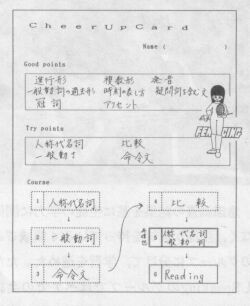 CheerUpCard
Name (　　　)
Good points
進行形　複数形　発音
一般動詞の過去形　時刻の表し方　疑問詞を含む文
冠詞　アクセント
Try points
人称代名詞　比較
一般動詞　命令文
Course
1 人称代名詞
↓
2 一般動詞
↓
3 命令文
4 比較
↓
5 人称代名詞
一般動詞
↓
6 Reading